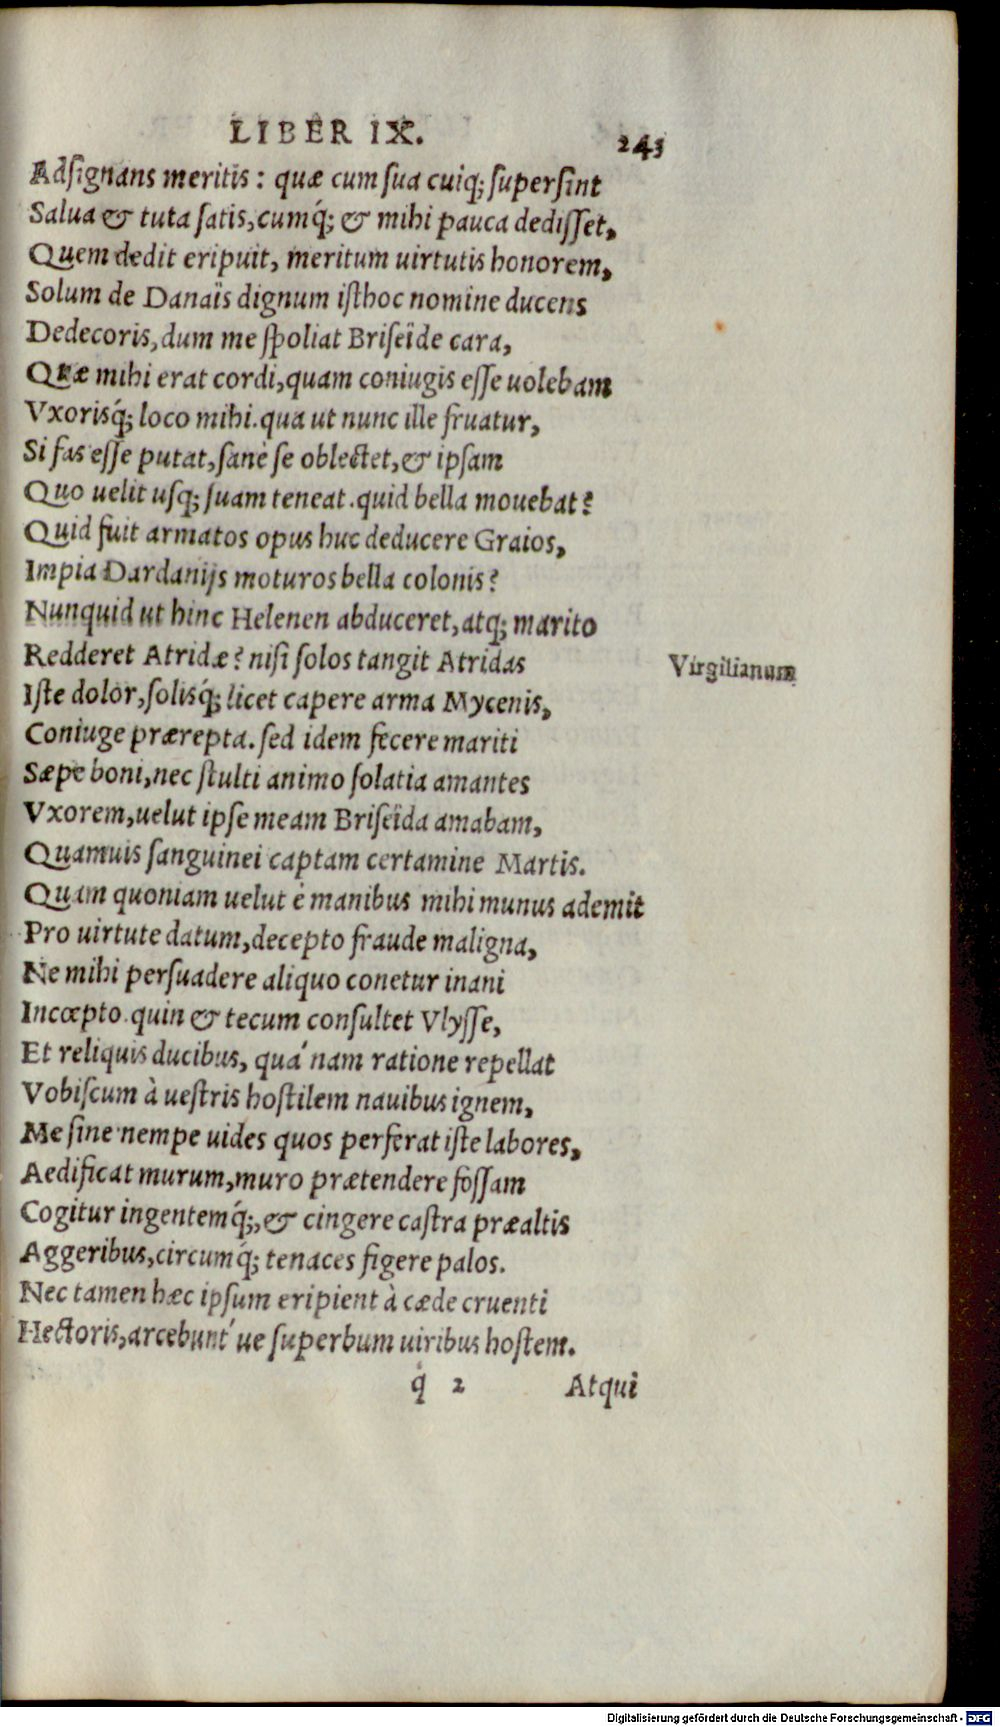 LIBER IX. 243
Adsignans meritis : quæ cum sua cuiq; supersint
Salua & tuta satis, cumq́; & mihi pauca dedisset,
Quem dedit eripuit, meritum uirtutis honorem,
Solum de Danaïs dignum isthoc nomine ducens
Dedecoris, dum me spoliat Briseïde cara,
Quæ mihi erat cordi, quam coniugis esse uolebam
Vxorisq́; loco mihi. qua ut nunc ille fruatur,
Si fas esse putat, sanè se oblectet, & ipsam
Quo uelit usq; suam teneat. quid bella mouebat?
Quid fuit armatos opus huc deducere Graios,
Impia Dardanijs moturos bella colonis?
Nunquid ut hinc Helenen abduceret, atq; marito
Redderet Atridæ? nisi solos tangit Atridas
Virgilianum
Iste dolor, solisq́; licet capere arma Mycenis,
Coniuge prærepta. sed idem fecere mariti
Sæpe boni, nec stulti animo solatia amantes
Vxorem, uelut ipse meam Briseïda amabam,
Quamuis sanguinei captam certamine Martis.
Quam quoniam uelut è manibus mihi munus ademit
Pro uirtute datum, decepto fraude maligna,
Ne mihi persuadere aliquo conetur inani
Incœpto. quin & tecum consultet Vlysse,
Et reliquis ducibus, quá nam ratione repellat
Vobiscum à uestris hostilem nauibus ignem,
Me sine nempe uides quos perferat iste labores,
Aedificat murum, muro prætendere fossam
Cogitur ingentemq́;, & cingere castra præaltis
Aggeribus, circumq́; tenaces figere palos.
Nec tamen hæc ipsum eripient à cæde cruenti
Hectoris, arcebunt´ue superbum uiribus hostem.
q 2 Atqui
Digitalisierung gefördert durch die Deutsche Forschungsgemeinschaft - DFG